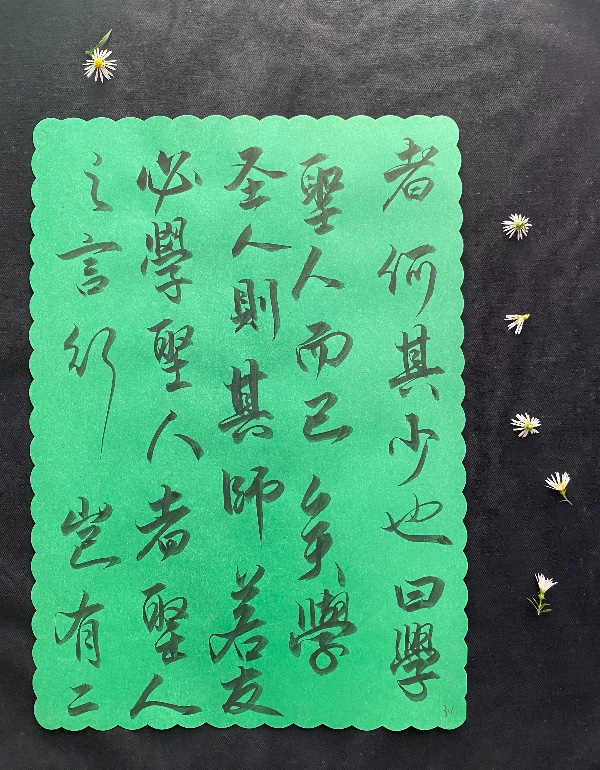 者何其少也曰學
聖人而已矣學
圣人則其師若友
必學聖人者聖人
之言行豈有二